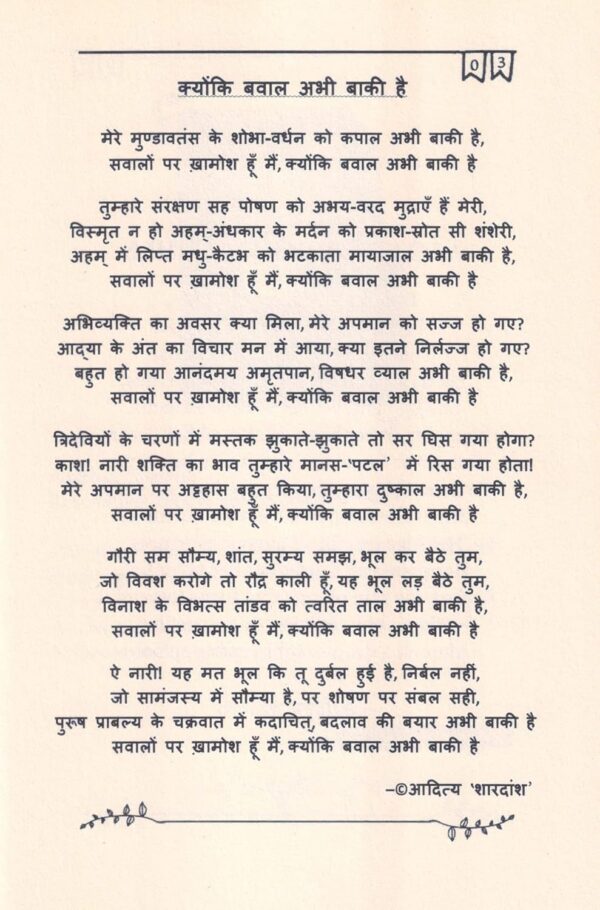 03
क्योंकि बवाल अभी बाकी है
मेरे मुण्डावतंस के शोभा-वर्धन को कपाल अभी बाकी है,
सवालों पर ख़ामोश हूँ मैं, क्योंकि बवाल अभी बाकी है
तुम्हारे संरक्षण सह पोषण को अभय-वरद मुद्राएँ हैं मेरी,
विस्मृत न हो अहम्-अंधकार के मर्दन को प्रकाश-स्रोत सी शंशेरी,
अहम् में लिप्त मधु-कैटभ को भटकाता मायाजाल अभी बाकी है,
सवालों पर ख़ामोश हूँ मैं, क्योंकि बवाल अभी बाकी है
अभिव्यक्ति का अवसर क्या मिला, मेरे अपमान को सज्ज हो गए?
आद्या के अंत का विचार मन में आया, क्या इतने निर्लज्ज हो गए?
बहुत हो गया आनंदमय अमृतपान, विषधर व्याल अभी बाकी है,
सवालों पर ख़ामोश हूँ मैं, क्योंकि बवाल अभी बाकी है
त्रिदेवियों के चरणों में मस्तक झुकाते-झुकाते तो सर घिस गया होगा?
काश! नारी शक्ति का भाव तुम्हारे मानस-'पटल' में रिस गया होता!
मेरे अपमान पर अट्टहास बहुत किया, तुम्हारा दुष्काल अभी बाकी है,
सवालों पर ख़ामोश हूँ मैं, क्योंकि बवाल अभी बाकी है
गौरी सम सौम्य, शांत, सुरम्य समझ, भूल कर बैठे तुम,
जो विवश करोगे तो रौद्र काली हूँ, यह भूल लड़ बैठे तुम,
विनाश के विभत्स तांडव को त्वरित ताल अभी बाकी है,
सवालों पर ख़ामोश हूँ मैं, क्योंकि बवाल अभी बाकी है
ऐ नारी! यह मत भूल कि तू दुर्बल हुई है, निर्बल नहीं,
जो सामंजस्य में सौम्या है, पर शोषण पर संबल सही,
पुरूष प्राबल्य के चक्रवात में कदाचित्, बदलाव की बयार अभी बाकी है
सवालों पर ख़ामोश हूँ मैं, क्योंकि बवाल अभी बाकी है
–©आदित्य 'शारदांश'